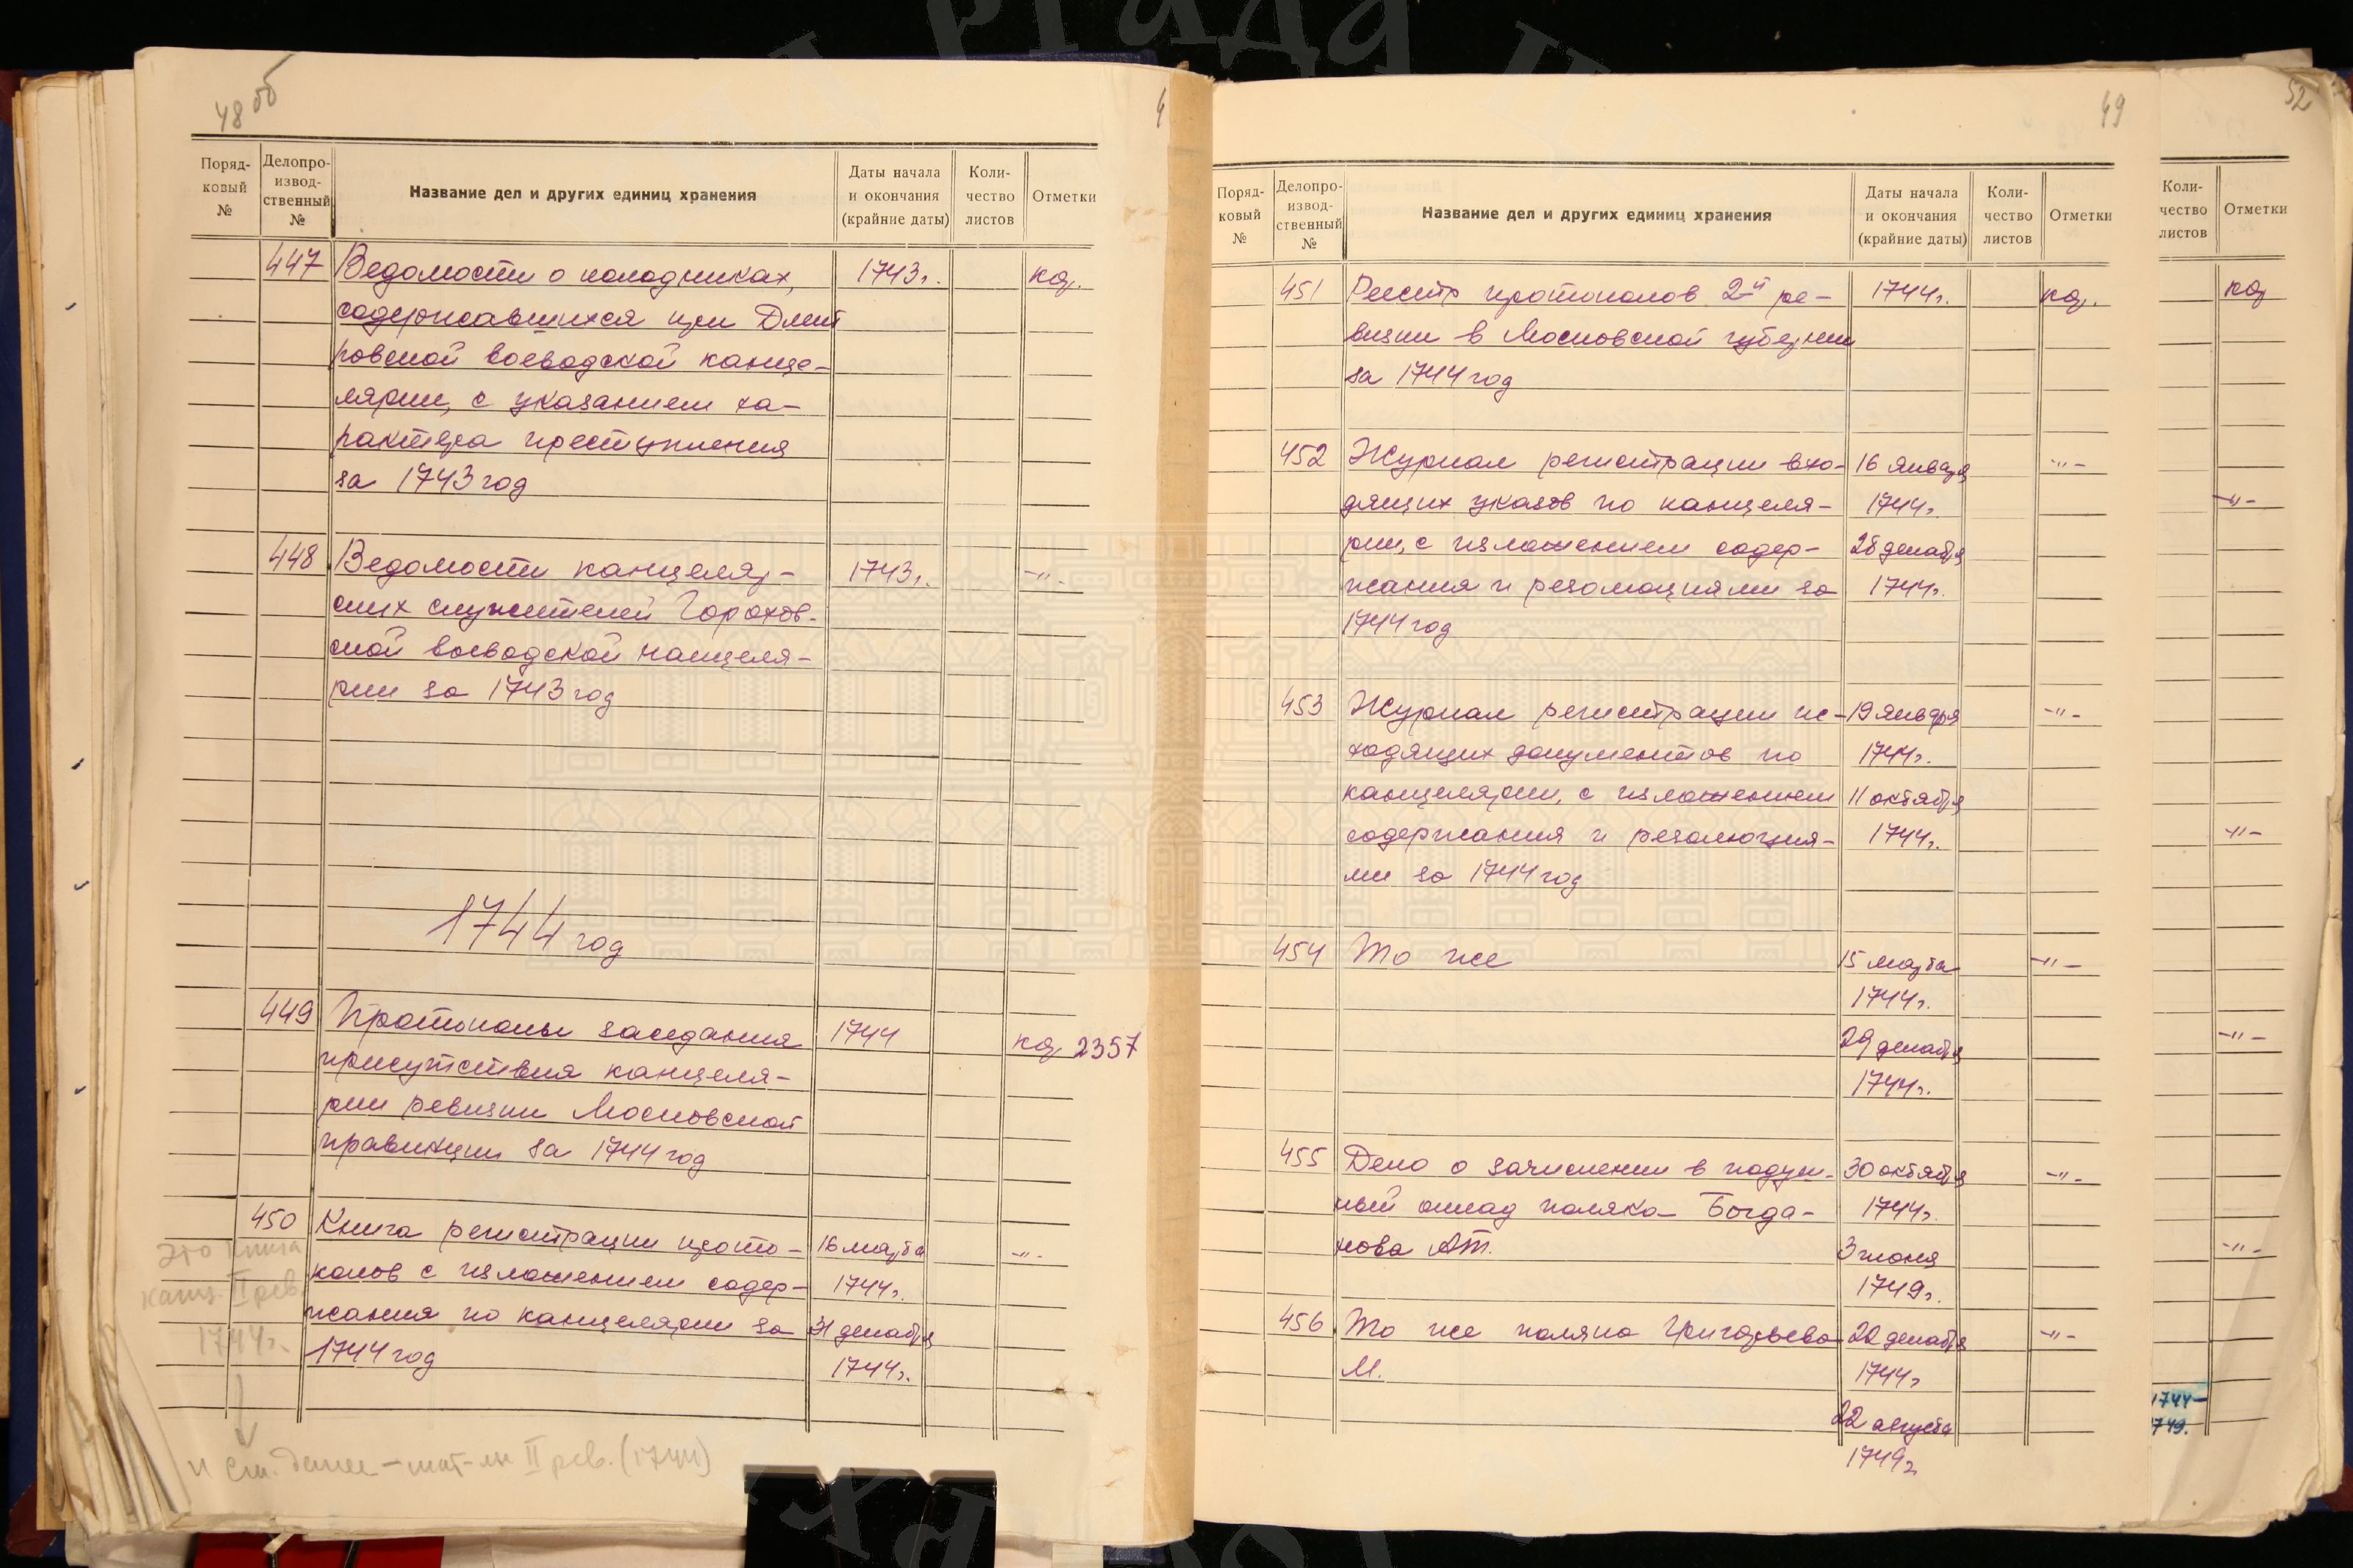 48 об
Поряд-
ковый
№
Делопро-
извод-
ственный
№
Название дел и других единиц хранения
Даты начала
и окончания
(крайние даты)
Коли-
чество
листов
Отметки
447 Ведомости о колодниках, 1743г. кф.
содержавшихся при Дмит
ровской воеводской канце-
лярии, с указанием ха-
рактера преступления
за 1743 год
448 Ведомости канцеляр- 1743г. -"-
ских служителей Горохов-
ской воеводской канцеля-
рии за 1743 год
1744 год
449 Протоколы заседания 1744 кф 2357
присутствия канцеля-
рии ревизии Московской
провинции за 1744 год
450 Книга регистрации прото- 16 марта -"-
колов с изложением содер- 1744г.
жания по канцелярии за 31 декабря
1744 год 1744г.
Это книга
канц. II рев.
1744г.
и см. далее - мат-лы II рев. (1744)
49
Поряд-
ковый
№
Делопро-
извод-
ственный
№
Название дел и других единиц хранения
Даты начала
и окончания
(крайние даты)
Коли-
чество
листов
Отметки
451 Реестр протоколов 2-й ре- 1744г. кф.
визии в Московской губернии
за 1744 год
452 Журнал регистрации вхо- 16 января -"-
дящих указов по канцеля- 1744г.
рии, с изложением содер- 28 декабря
жания и резолюциями за 1744г.
1744 год
453 Журнал регистрации ис- 19 января -"-
ходящих документов по 1744г.
канцелярии, с изложением 11 октября
содержания и резолюция- 1744г.
ми за 1744 год
454 То же 15 марта -"-
1744г.
29 декабря
1744г.
455 Дело о зачислении в подуш- 30 октября -"-
ный оклад поляка Богда- 1744г.
нова Ат. 3 июня
1749г.
456 То же поляка Григорьева 22 декабря -"-
М. 1744г
22 августа
1749г
52
Коли-
чество
листов
Отметки
кф
-"-
-"-
-"-
-"-
1744-
749.